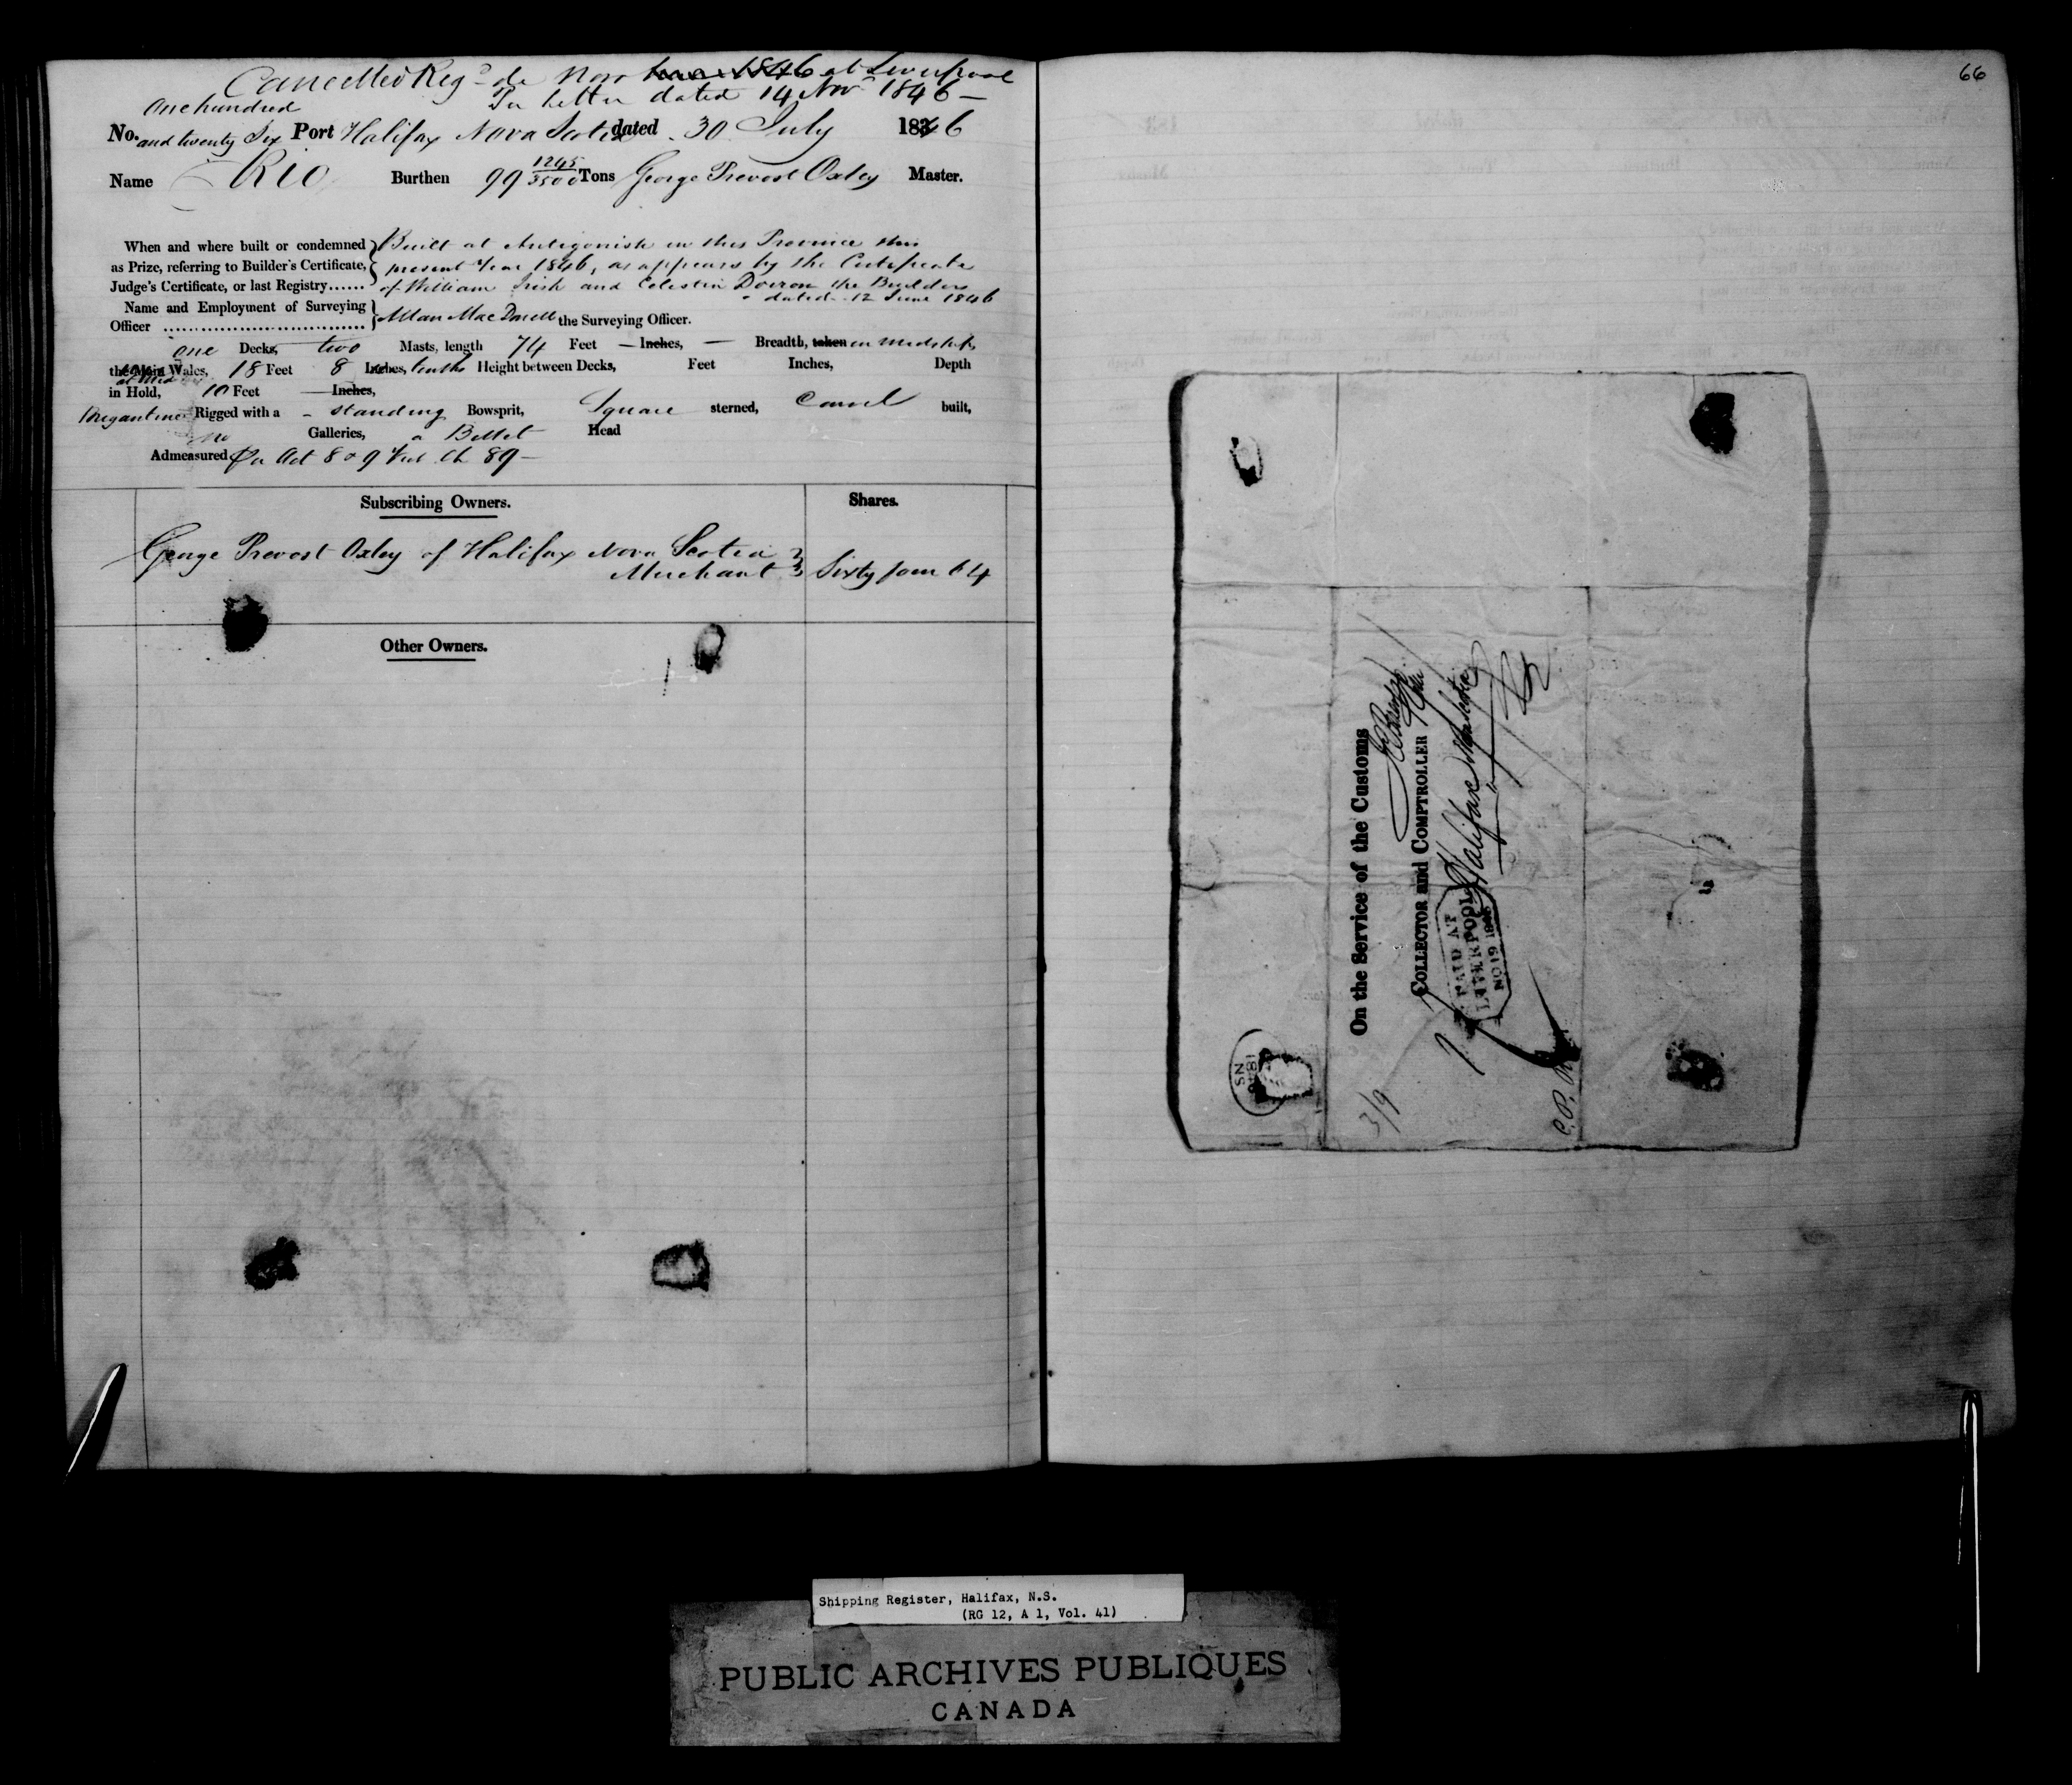 Cancelled Reg.d de novo at Liverpool
Per Letter dated 14 Nov 1846 —
One hundred
No. and twenty Six Port Halifax Nova Scotia dated 30 July 1846
Name Rio Burthen 99 1245/3500 Tons George Prevost Oxley Master.
When and where built or condemned } Built at Antigonish in this Province this
as Prize, referring to Builder's Certificate, { present Year 1846, as appears by the Certificate
Judge's Certificate, or last Registry...... of William Irish and Celestin Doiron the Builders
dated 12 June 1846
Name and Employment of Surveying
Officer } Allan MacDonell the Surveying Officer.
one Decks, two Masts, length 74 Feet — Inches, — Breadth, taken in midships
the Main Wales, 18 Feet 8 Inches, tenths Height between Decks, Feet Inches, Depth
in Hold, 10 Feet — Inches,
Brigantine Rigged with a - standing Bowsprit, Square sterned, Carvel built,
no Galleries, a Billet Head
Admeasured Per Act 8 & 9 Vic Ch 89 —
Subscribing Owners. Shares.
George Prevost Oxley of Halifax Nova Scotia
Merchant } Sixty four 64
Other Owners.
66
On the Service of the Customs
COLLECTOR and COMPTROLLER
Halifax Nova Scotia
PAID AT
LIVERPOOL
NO 19 1846
3/9
Shipping Register, Halifax, N.S.
(RG 12, A 1, Vol. 41)
PUBLIC ARCHIVES PUBLIQUES
CANADA